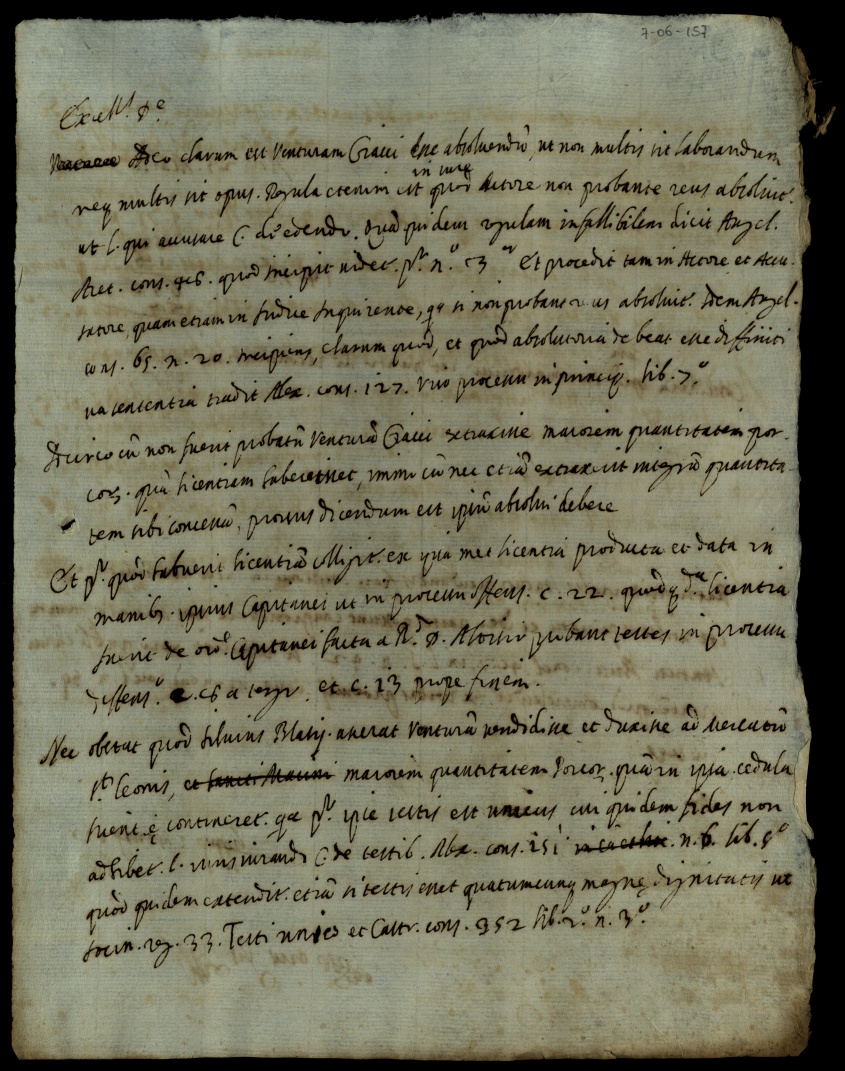 7-06-157
Excell.t D.e
Adeo clarum est Venturam Ciacci esse absoluendũ, ut non multis sit laborandum
neq multis sit opus. Regula etenim est in iure quod Actore non probante reus absoluit.
ut l. qui accusare C. de edendo. Quã quidem regulam infallibilem dicit Angel.
Aret. cons. quod incipit uidet. pr. n.º 3 et procedit tam in Actore et Accu
satore, quam etiam in Iudice Inquirente, qa si non probant reus absoluit. Idem Angel.
cons. 65. n. 20. incipiens, clarum quod, et quod absolutoria debeat esse diffiniti
ua sententia tradit Alex. cons. 127. uiso processu in princip. lib. 7.º
Idcirco cũ non fuerit probatũ Venturã Ciacci extraxisse maiorem quantitatem por
cor. quã licentiam haberet, immo cũ nec etiã extraxerit integrã quantita
tem sibi concessã, prorsus dicendum est ipsũ absolui debere
Et pr. quod habuerit licentiã colligit. ex ipsamet licentia producta et data in
manib. ipsius Capitanei ut in processu offens. c. 22. quod qd.a licentia
fuerit de ord.e Capitanei facta a R.do D. probant testes in processu
diffens.º c. 6 a tergo et c. 13 prope finem.
Nec obstat quod Siluius Blasij. asserat Venturã uendidisse et duxisse ad Mercatũ
s.ti Leonis, et Sancti Marini maiorem quantitatem Porcor. quã in ipsa cedula
fuerit et contineret. qa pr. ipse testis est unicus cui quidem fides non
adhibet. l. iurisiurandi C. de testib. Alex. cons. 151 n. 6. lib. 5.º
quod quidem extendit. etiã si testis esset quatumcunq magnę dignitatis ut
Socin. reg. 33. Testi unico et Castr. cons. 352 lib. 2.º n. 3.º